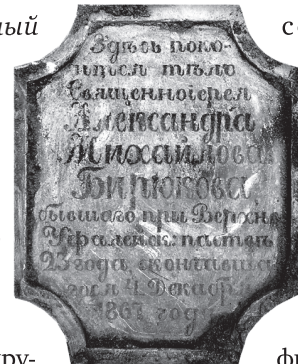 ный
с
Здѣсь поко-
ится тѣло
Священноіерея
Александра
Михайлова
Бирюкова,
бывшаго при Верхне
23 года, скончавша
гося 4 Декабря
1867 году
ру-